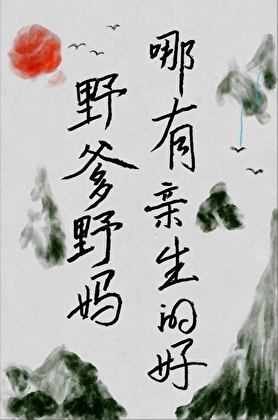 哪有亲生的好
野爹野妈